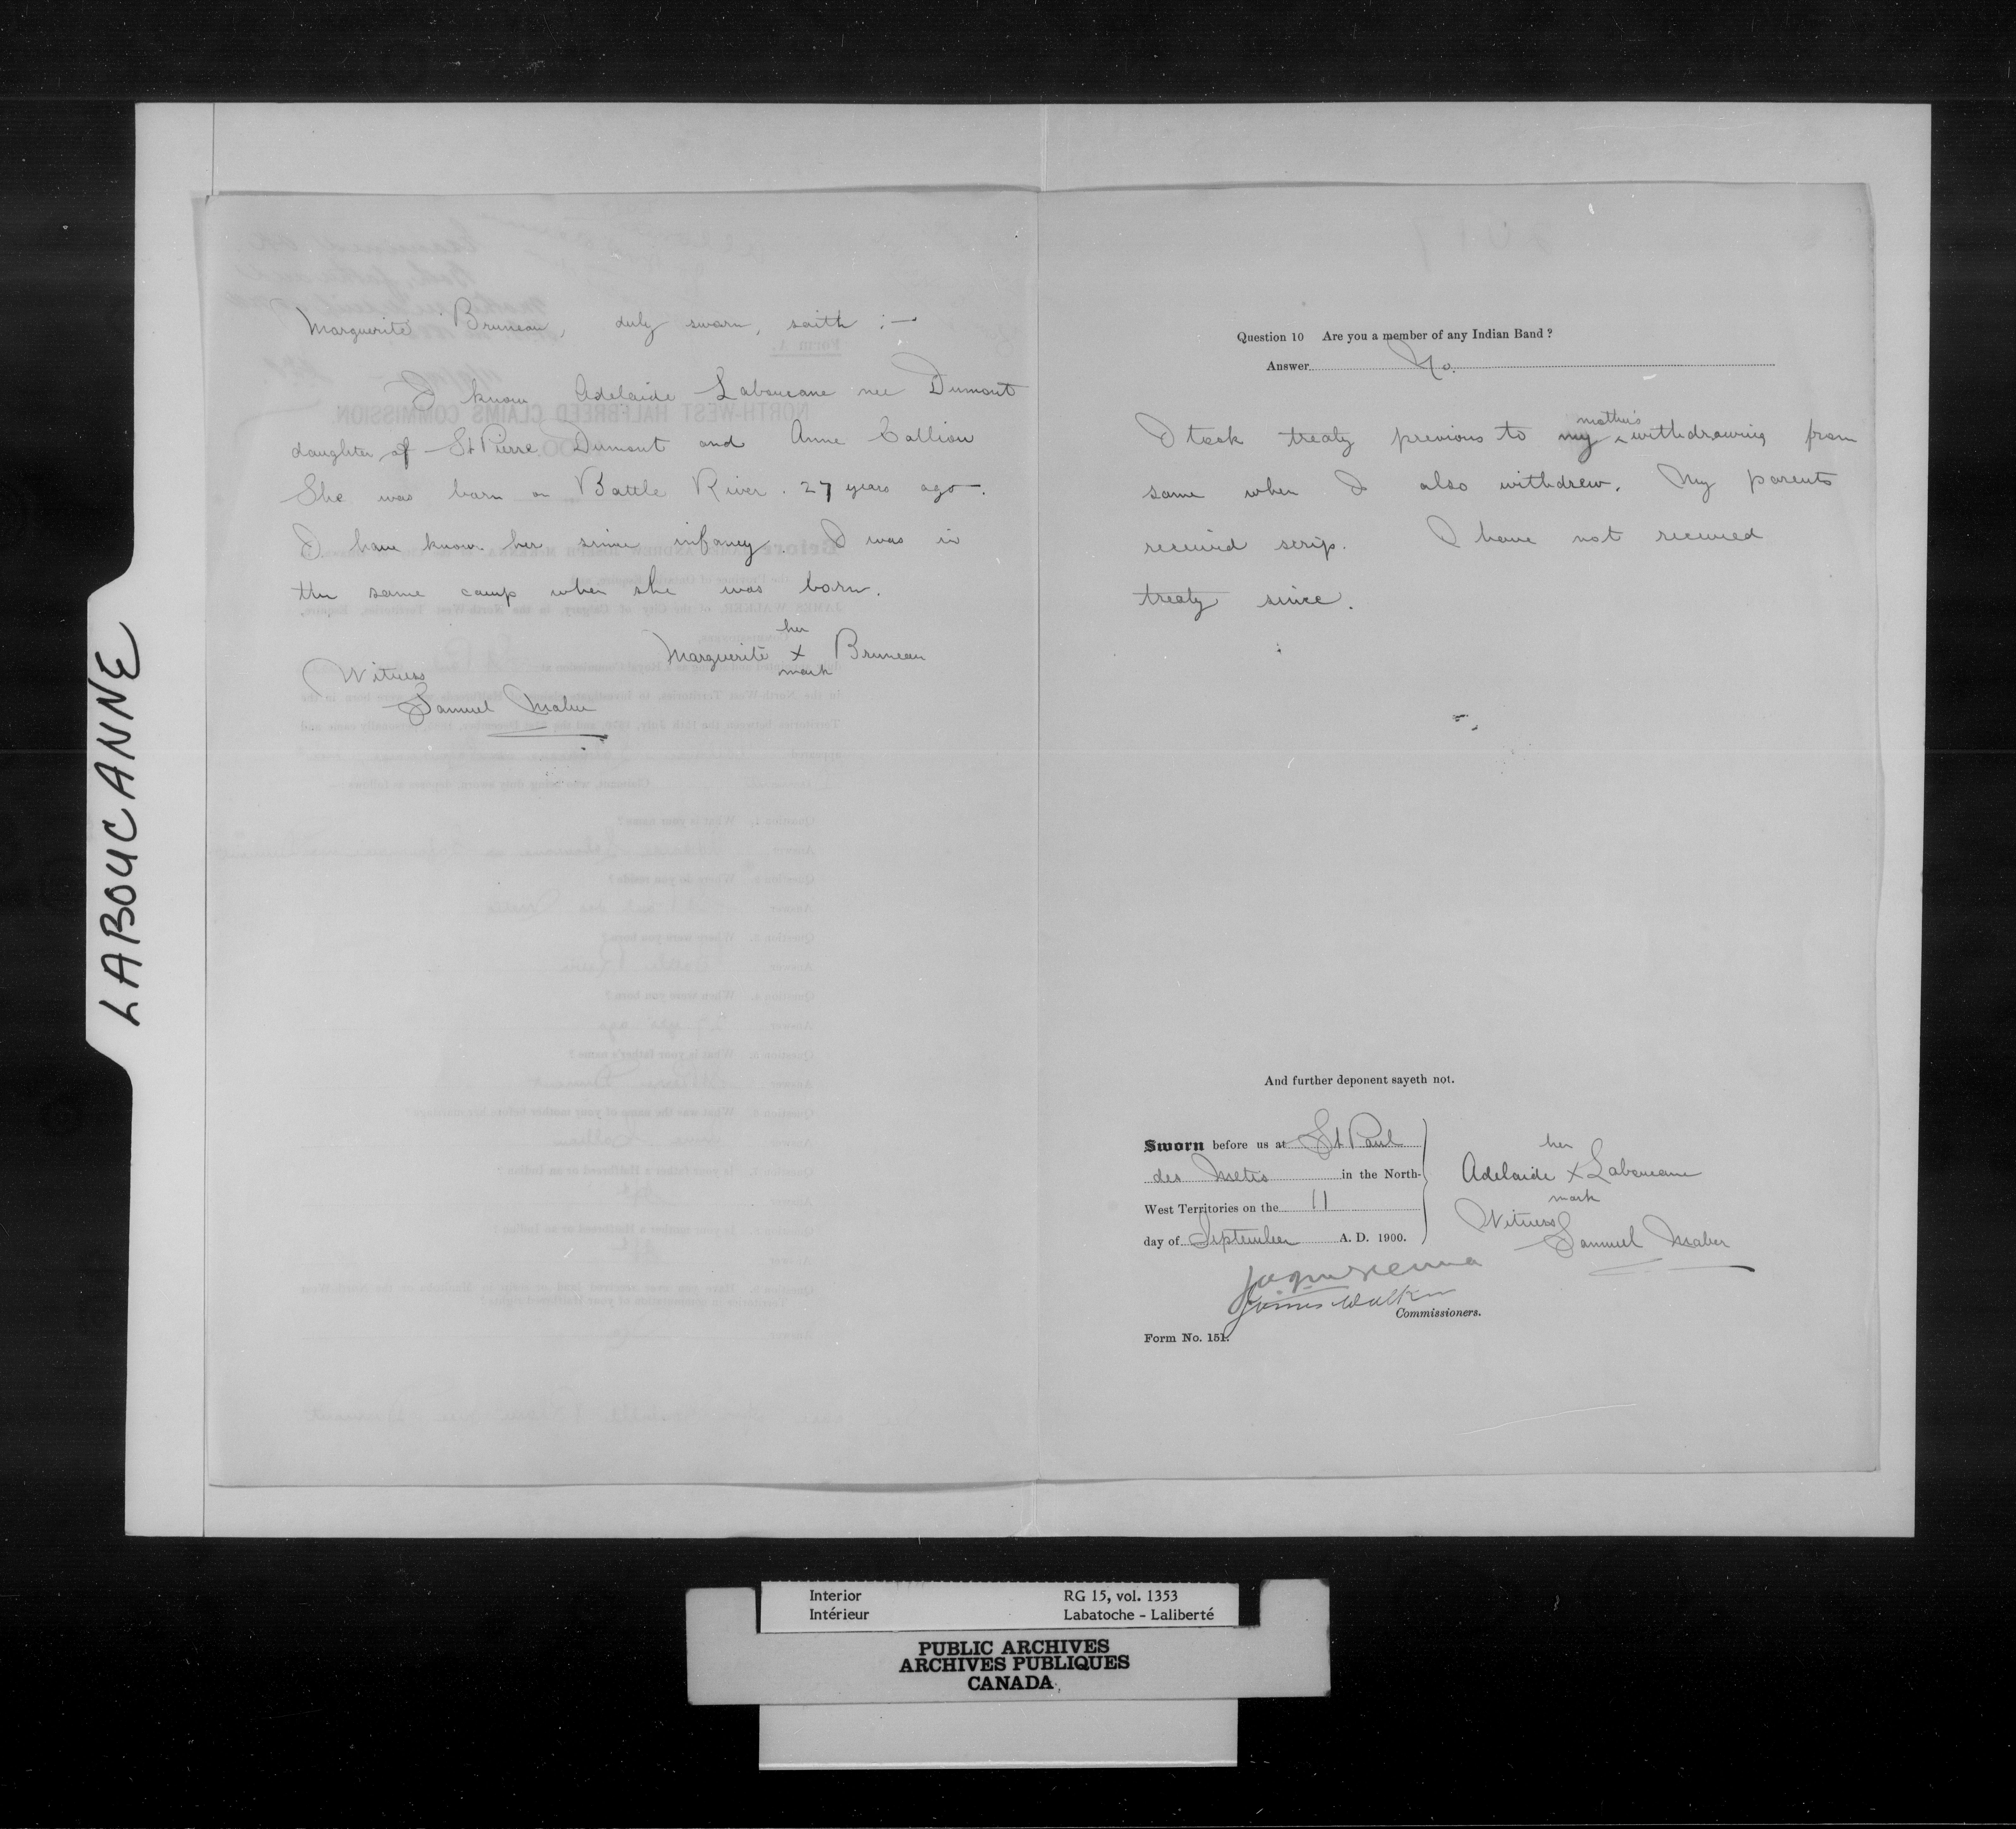 LABOUCANNE
Marguerite Bruneau, duly sworn, saith :—
I know Adelaide Laboucane nee Dumont
daughter of St Pierre Dumont and Anne Callion
She was born on Battle River. 27 years ago.
I have know her since infancy. I was in
the same camp when she was born.
her
Marguerite x Bruneau
mark
Witness
Samuel Maber
Question 10 Are you a member of any Indian Band ?
Answer No.
mother's
I took treaty previous to my ^ withdrawing from
same when I also withdrew. My parents
received scrip. I have not received
treaty since.
And further deponent sayeth not.
Sworn before us at St Paul
des Metis in the North-
West Territories on the 11
day of September A. D. 1900.
her
Adelaide x Laboucane
mark
Witness
Samuel Maber
James Walker
Commissioners.
Form No. 151.
Interior
Intérieur
RG 15, vol. 1353
Labatoche - Laliberté
PUBLIC ARCHIVES
ARCHIVES PUBLIQUES
CANADA